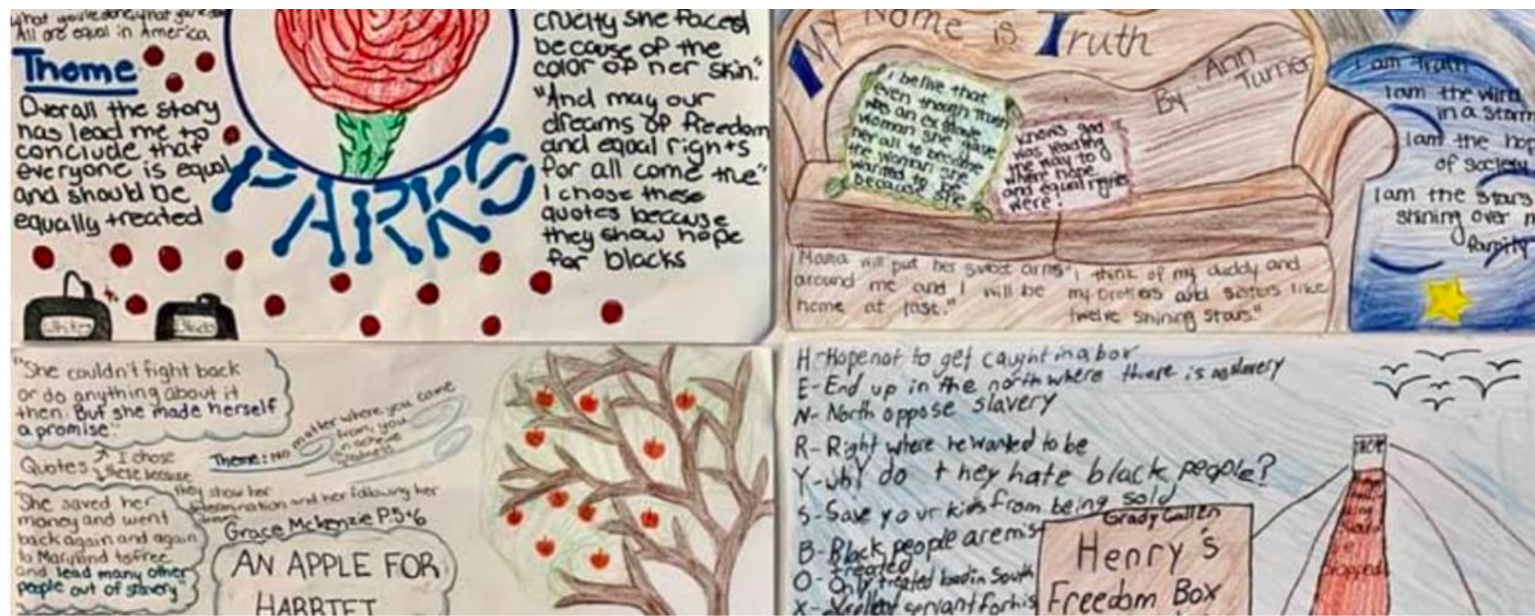 what you've done, what you've
All are equal in America
Theme
Overall the story
has lead me to
conclude that
everyone is equal
and should be
equally treated
PARKS
cruelty she faced
because of the
color of her skin."
"And may our
dreams of freedom
and equal rights
for all come true"
I chose these
quotes because
they show hope
for blacks
My Name is Truth
By Ann
Turner
I belive that
even though Truth
was an ex slave
woman she gave
her all to become
the woman she
wanted to be
because she
knows god
was leading
the way to
where hope
and equal rights
were!
Mama will put her sweet arms
around me and I will be
home at last."
"I think of my daddy and
my brothers and sisters like
twelve shining stars."
I am Truth
I am the wind
in a storm
I am the hop
of society
I am the stars
shining over m
"She couldn't fight back
or do anything about it
then. But she made herself
a promise."
Quotes
I chose
these because
they show her
determination and her following her
Theme: No matter where you come
from, you
can achieve
greatness
She saved her
money and went
back again and again
to Maryland to free
and lead many other
people out of slavery
Grace McKenzie P.5+6
AN APPLE FOR
HARRIET
H-Hope not to get caught in a box
E-End up in the north where there is no slavery
N-North oppose slavery
R-Right where he wanted to be
Y-why do they hate black people?
S-Save your kids from being sold
B-Black people are mis
treated
O-Only treated bad in South
X-
servant for his
Grady Cullen
Henry's
Freedom Box